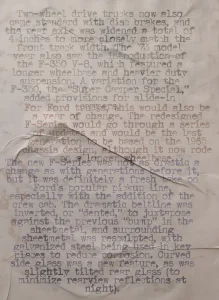 Two-wheel drive trucks now also
came standard with disc brakes, and
the rear axle was widened a total of
4-inches to more closely match the
front track width. The '73 model
year also saw the introduction of
the F-350 V41, which featured a
longer wheelbase and heavier duty
suspension. A variation for the
F-350, the "Super Camper Special,"
added provisions for all
For Ford this would also be
a year of change. The redesigned
F-Series would go through a series
and would be the last
to be based on the 1965
chassis design, though it now rode
The new F-Series was not as drastic a
change as with generations before it,
but it was definitely a fresh take on
Ford's popular pickup line,
especially with the addition of the
crew cab. The dramatic beltline was
inverted, or "dented," to juxtapose
against the previous "bump" in the
sheetmetal, and surrounding
sheetmetal was resculpted, with
galvanized steel being used in key
places to reduce corrosion. Curved
side glass was a new feature, as was
slightly tilted rear glass (to
minimize rearview reflections at
night).